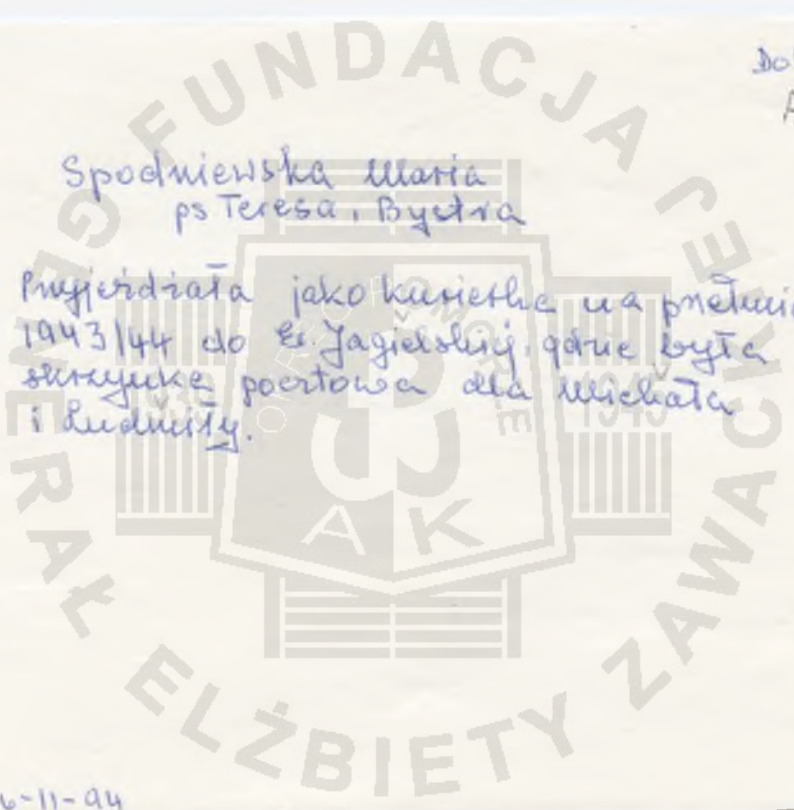 Spodniewska Maria
ps Teresa, Bystra
Przyjeżdżała jako kurierka na przełomie
1943/44 do Er. Jagielskiej, gdzie była
skrzynka pocztowa dla Michała
i Ludmiły.
6-11-94
FUNDACJA GENERAŁ ELŻBIETY ZAWACKIEJ
ARMIA KRAJOWA POMORZE
AK
1939
1945